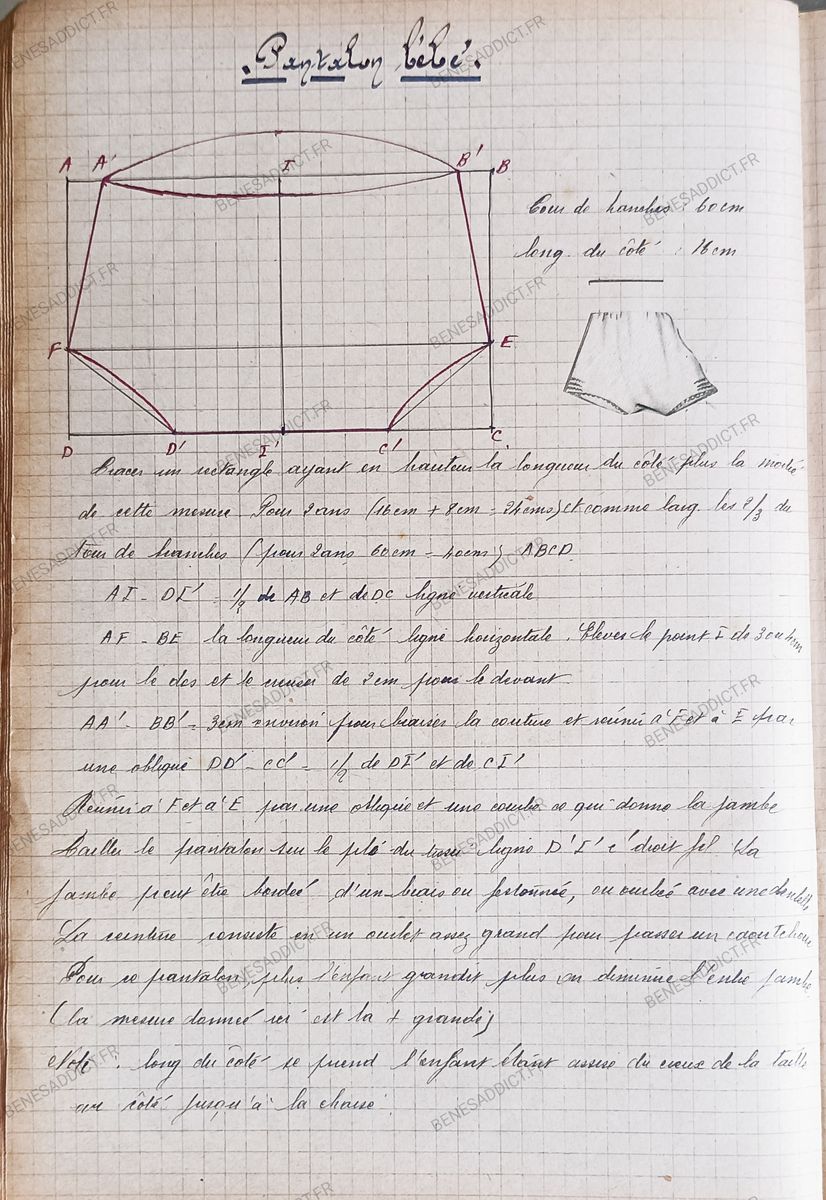 . Pantalon bébé .
A A' I B' B
Tour de hanches : 60 cm
long. du côté : 16 cm
F E
D D' I' C' C
Tracer un rectangle ayant en hauteur la longueur du côté plus la moitié
de cette mesure. Pour 2 ans (16 cm + 8 cm = 24 cms) et comme larg. les 2/3 du
tour de hanches (pour 2 ans 60 cm = 40 cm) ABCD
AI - DI' = 1/2 de AB et de DC ligne verticale
AF - BE la longueur du côté ligne horizontale. Elever le point I de 3 ou 4 cm
pour le dos et le creuser de 2 cm pour le devant.
AA' - BB' = 3 cm environ pour biaiser la couture et réunir A' F et à E par
une oblique DD' - CC' = 1/2 de DI' et de CI'
Réunir à F et à E par une oblique et une courbe ce qui donne la jambe
Tailler le pantalon sur le plé du tissu ligne D' I' C' droit fil La
jambe peut être bordée d'un biais ou festonnée, ou ourlée avec une dentelle
La ceinture consiste en un ourlet assez grand pour passer un caoutchouc
Pour ce pantalon, plus l'enfant grandit plus on diminue l'entre jambe
(la mesure donnée ici est la + grande)
Note . long du côté se prend l'enfant étant assise du creux de la taille
au côté jusqu'à la chaise.
BENESADDICT.FR